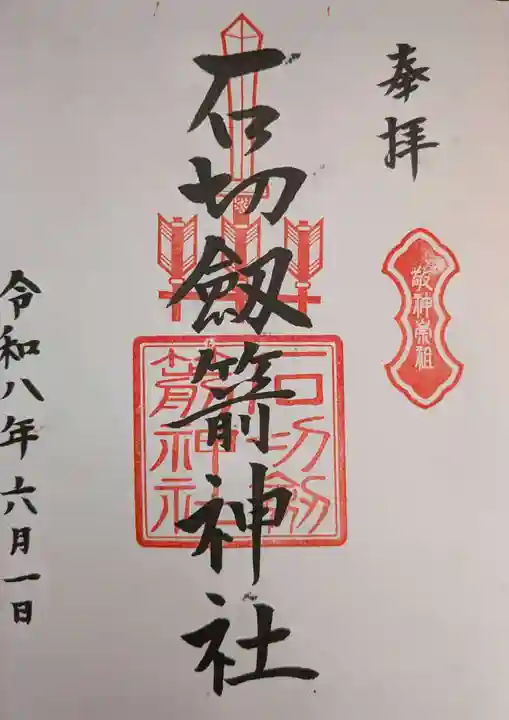 奉拝
敬神崇祖
石切劔箭神社
石切劔
箭神社
令和八年六月一日